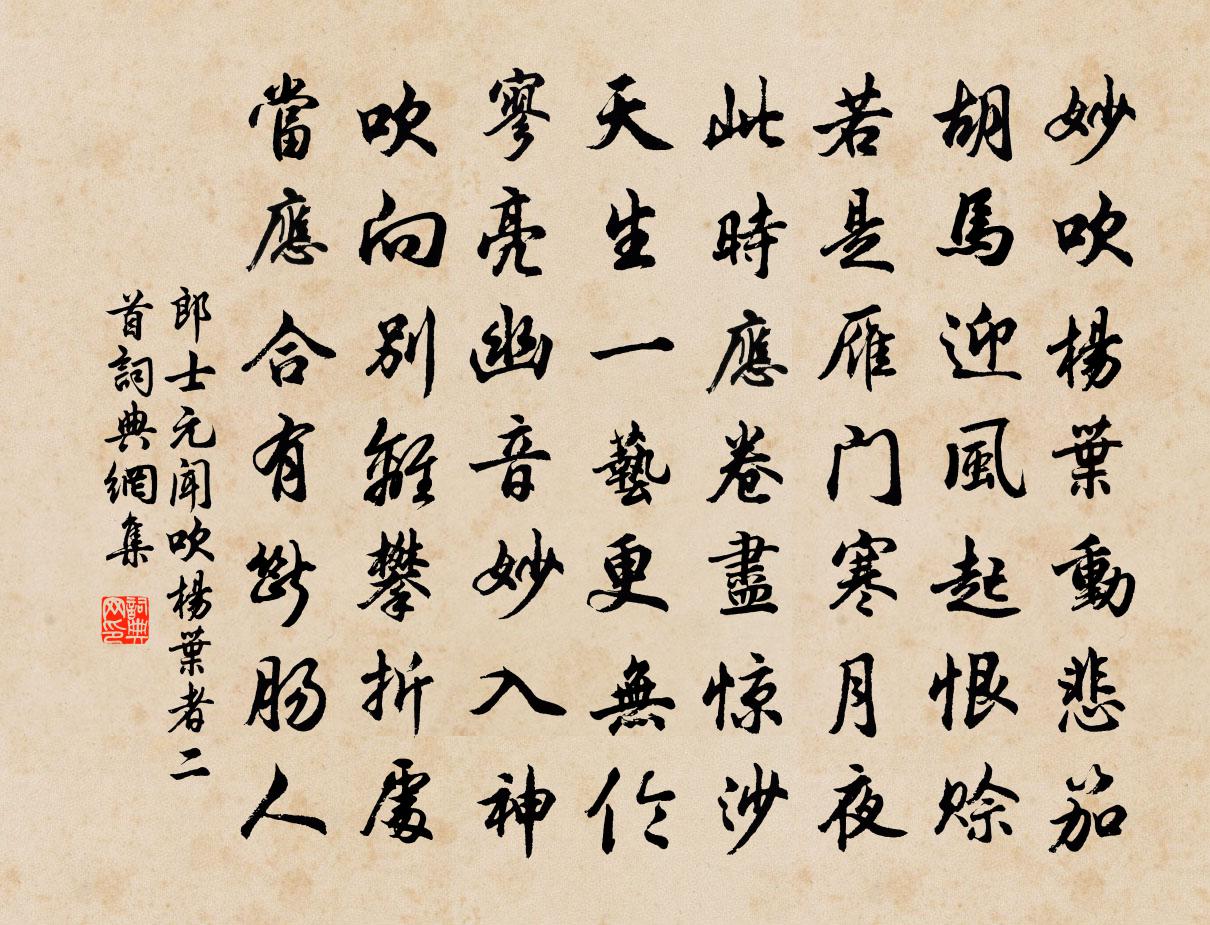 妙吹楊葉動悲笳
胡馬迎風起恨賒
若是雁门寒月夜
此時應卷盡惊沙
天生一藝更無伦
寥亮幽音妙入神
吹向别離攀折處
當應合有断肠人
郎士元聞吹楊葉者二
首詞典網集
詞典
网印